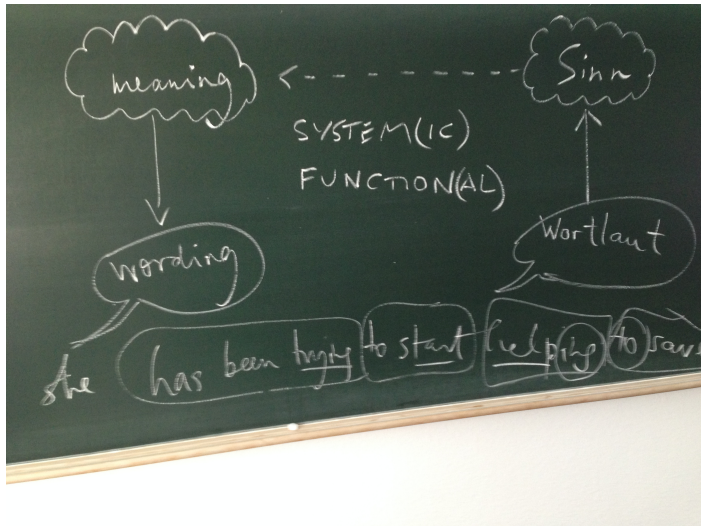 meaning Sinn
SYSTEM(IC)
FUNCTION(AL)
wording Wortlaut
she has been trying to start helping to